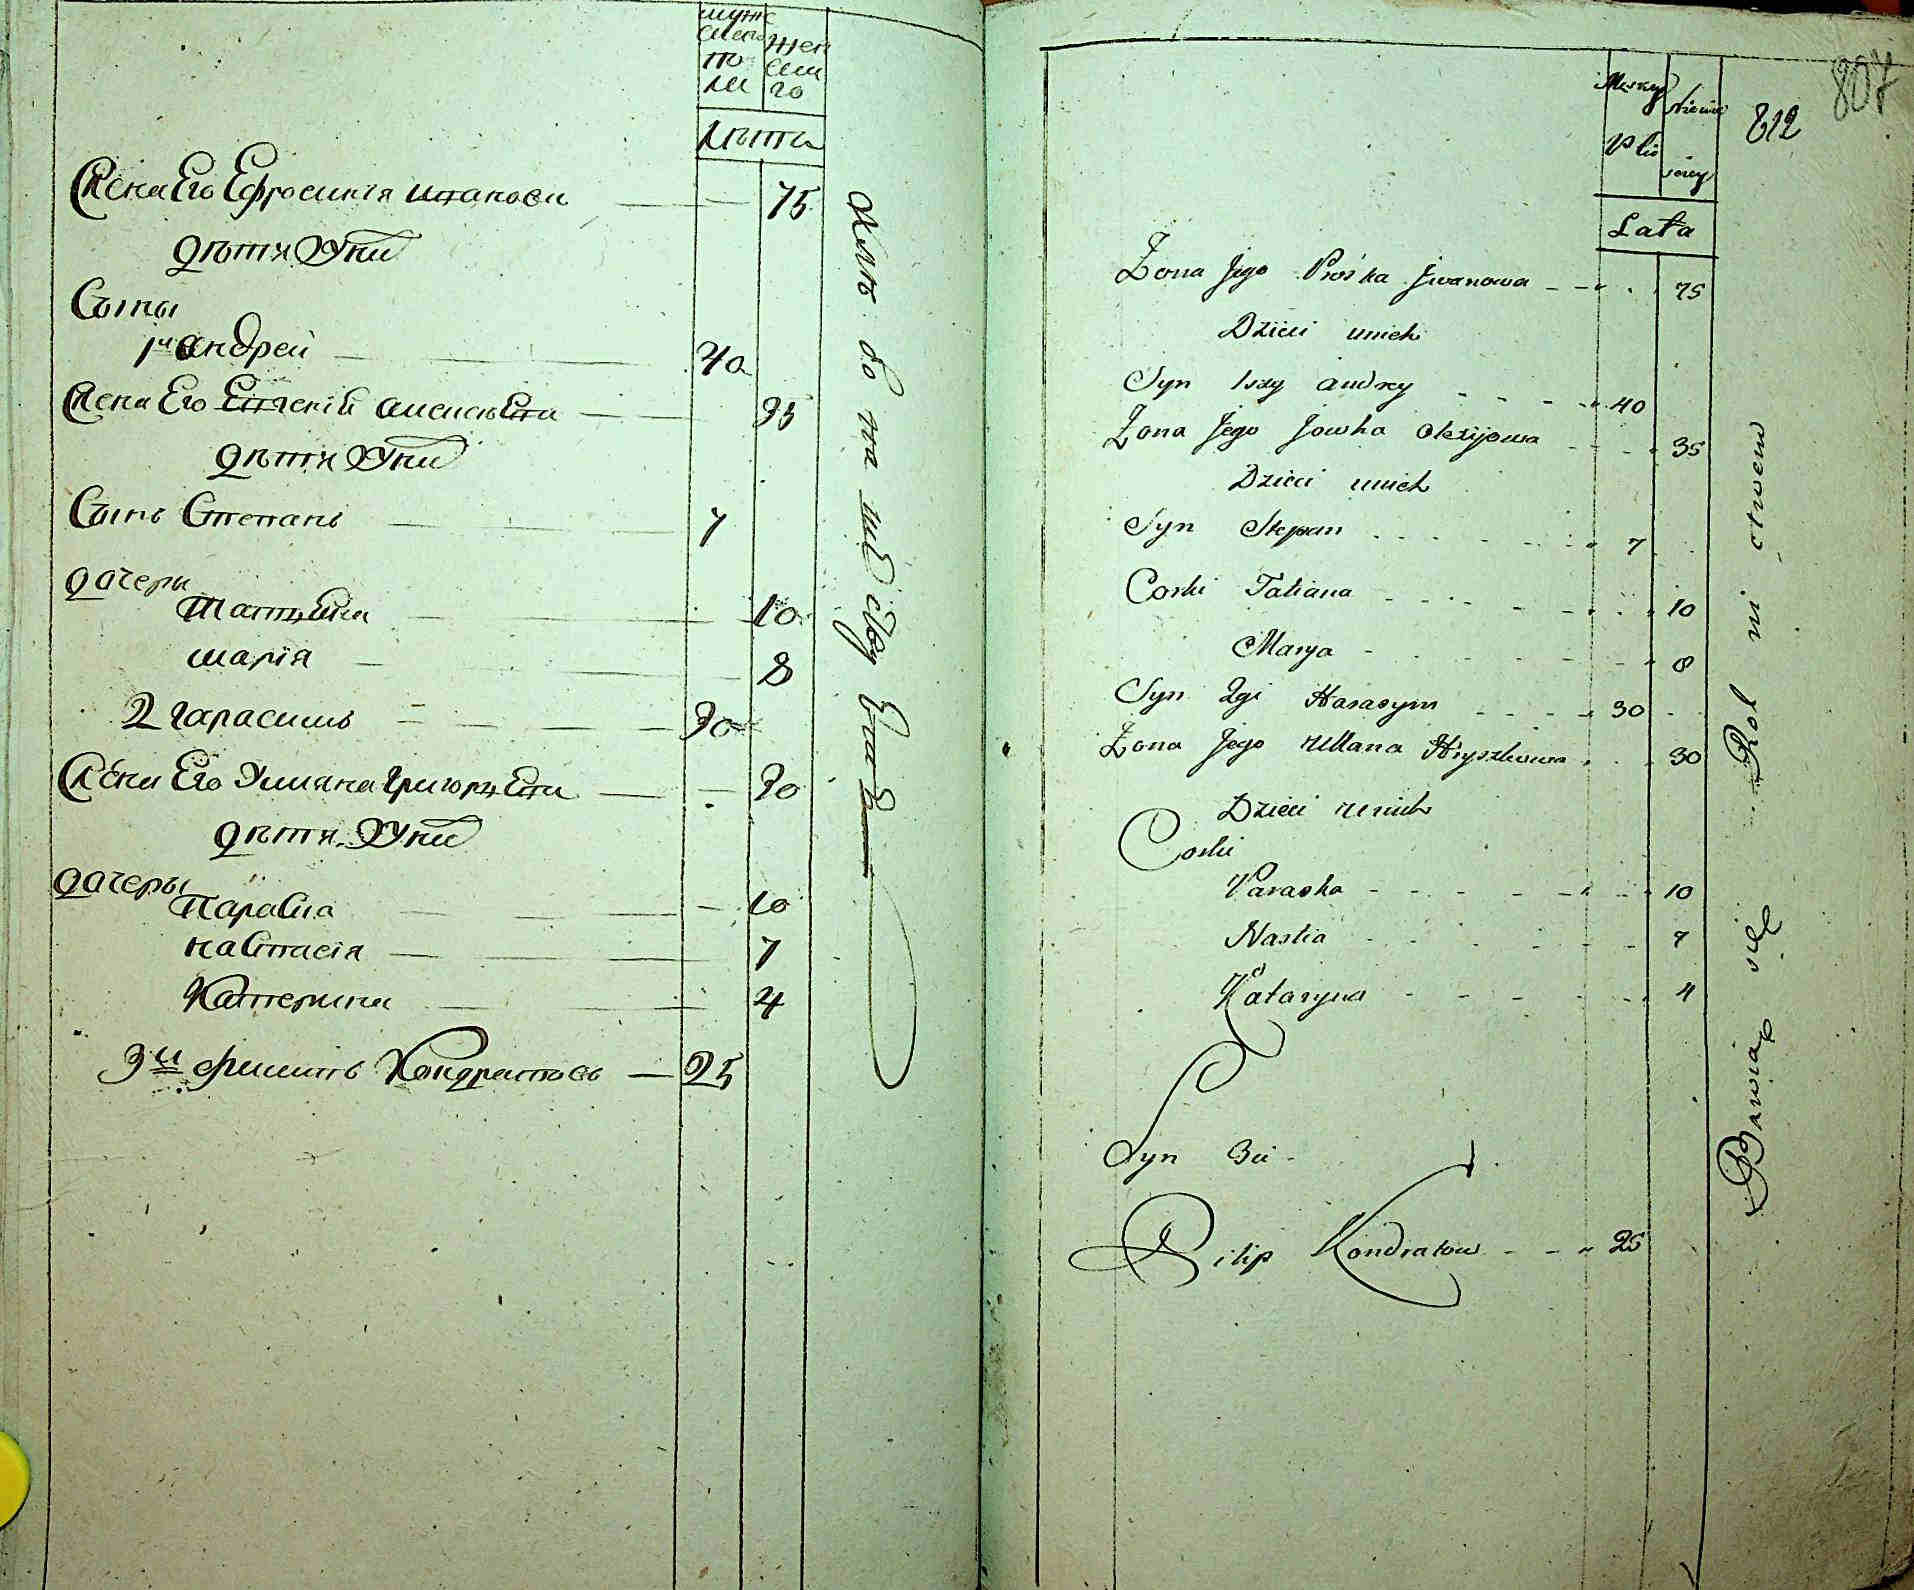 муже
ска
по
ла
жен
ска
го
Лѣта
Жена Его Ефросинія Иванова — 75
Дѣти У нихъ
Сыны
1й Андрей — 40
Жена Его Евгенія Алексѣева — 35
Дѣти У нихъ
Сынъ Степанъ — 7
Дочери
Татьяна — 10
Марія — 8
2 Гарасимъ — 30
Жена Его Улляна Григорьева — 30
Дѣти У нихъ
Дочеры
Параска — 10
Настасія — 7
Катерина — 4
3й Филипъ Кондратовъ — 25
807
812
Męzkiej
Płci
żeńs
kiey
Lata
Żona Jego Prośka Jwanowa 75
Dzieci u nich
Syn 1szy Andrey 40
Żona Jego Jowha Olexijowa 35
Dzieci u nich
Syn Stepan 7
Corki Tatiana 10
Marya 8
Syn 2gi Harasym 30
Żona Jego Ullana Hryszkowa 30
Dzieci u nich
Corki
Paraska 10
Nastia 7
Kataryna 4
Syn 3ci
Filip Kondratow 25
Bawią się Rolnictwem